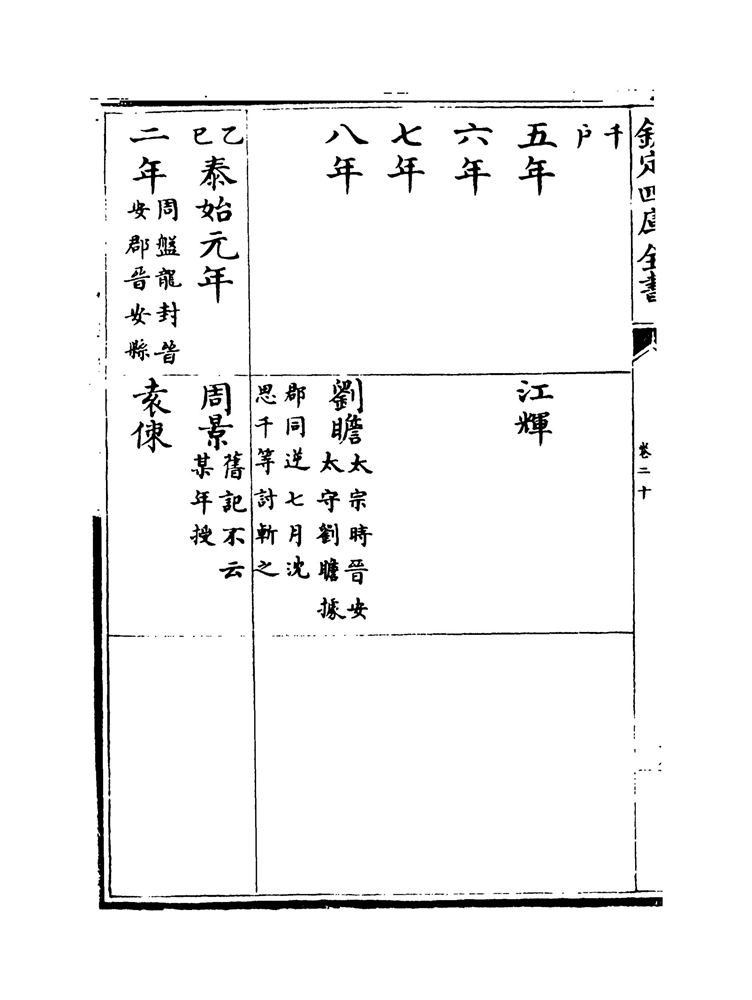 欽定四庫全書
卷二十
千
户
五年
江輝
六年
七年
八年
劉瞻
太宗時晉安
太守劉瞻據
郡同逆七月沈
思千等討斬之
乙
巳
泰始元年
周景
舊記不云
某年授
二年
周盤龍封晉
安郡晉安縣
袁倲